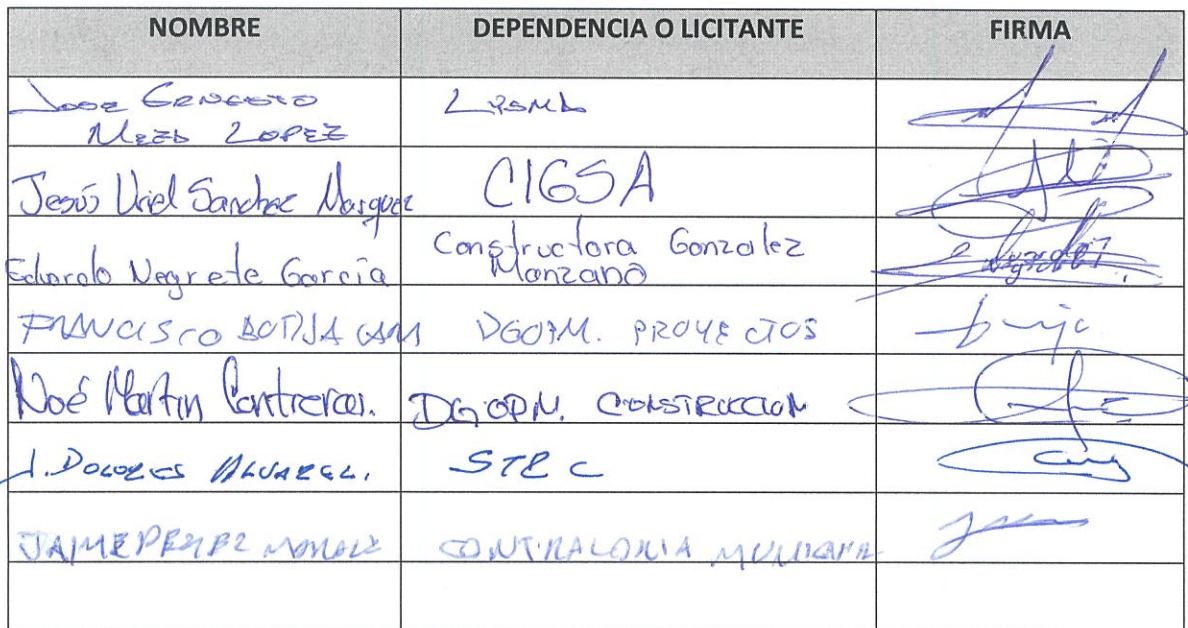 NOMBRE DEPENDENCIA O LICITANTE FIRMA
Jose Ernesto
Meza Lopez
Jesús Uriel Sanchez Marquez CIGSA
Eduardo Negrete García Constructora Gonzalez
Manzano
FRANCISCO BOTIJA DGOPM. PROYECTOS
Noé Martin Contreras. DGOPM. CONSTRUCCION
J. DOLORES ALVAREZ. STRC
JAIME PEREZ CONTRALORIA MUNICIPAL